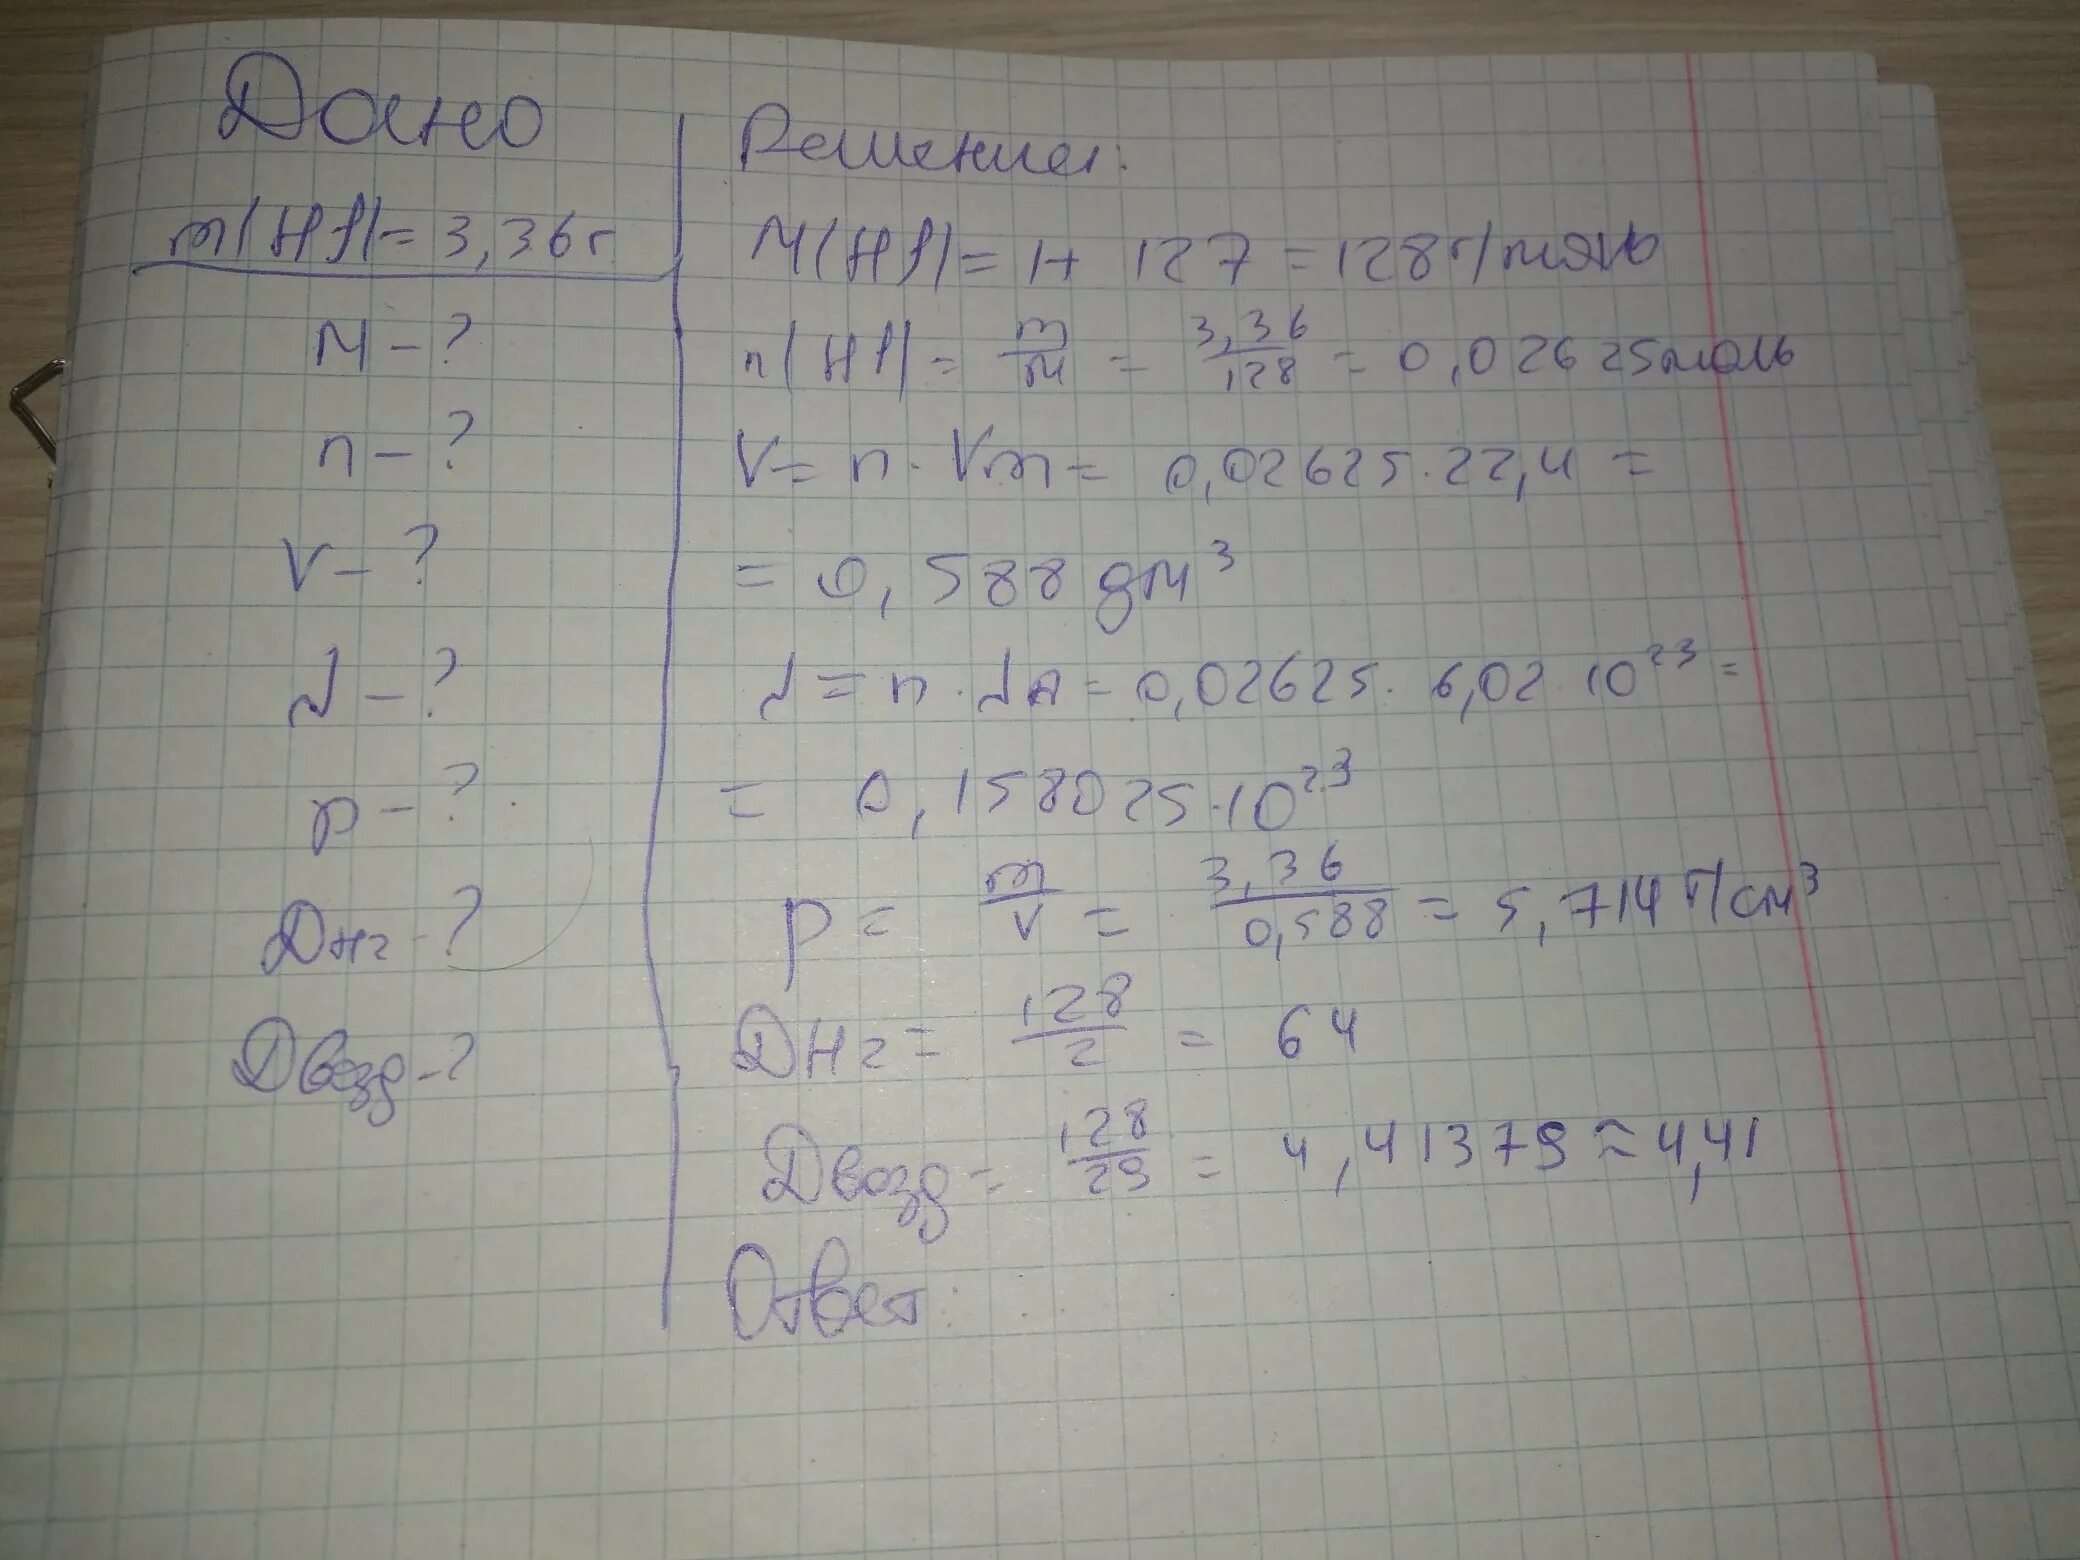 Дано
m(HI) = 3,36г
M - ?
n - ?
V - ?
N - ?
p - ?
DH2 - ?
Dвозд - ?
Решение:
M(HI) = 1 + 127 = 128г/моль
n(HI) = m/M = 3,36/128 = 0,02625моль
V = n · Vm = 0,02625 · 22,4 =
= 0,588 дм³
N = n · NA = 0,02625 · 6,02 · 10²³ =
= 0,158025 · 10²³
p = m/V = 3,36/0,588 = 5,714 г/см³
DH2 = 128/2 = 64
Dвозд = 128/29 = 4,41379 ≈ 4,41
Ответ: